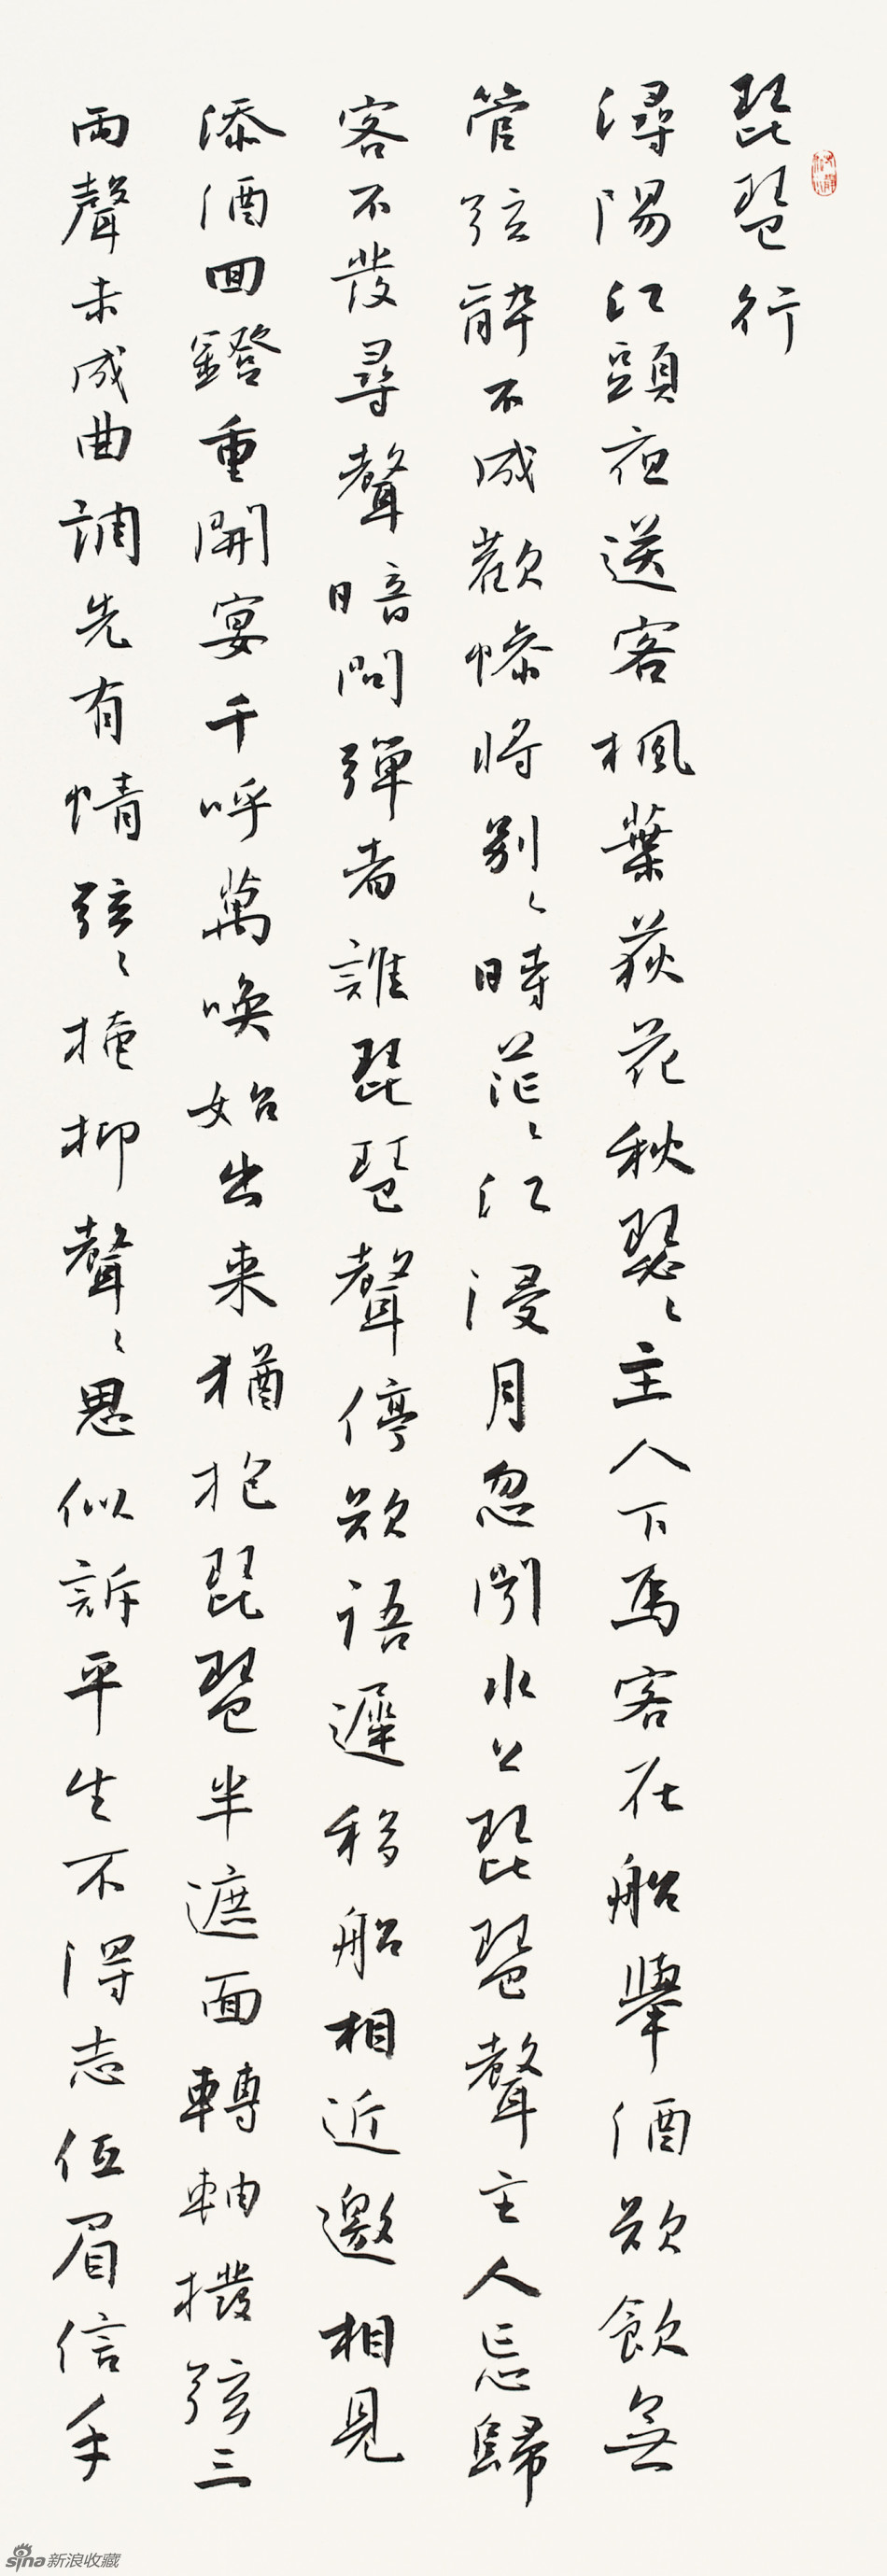 琵琶行
潯陽江頭夜送客楓葉荻花秋瑟〻主人下馬客在船舉酒欲飲無
管弦醉不成歡慘將別〻時茫〻江浸月忽聞水上琵琶聲主人忘歸
客不發尋聲暗問彈者誰琵琶聲停欲語遲移船相近邀相見
添酒回鐙重開宴千呼萬喚始出来猶抱琵琶半遮面轉軸撥弦三
兩聲未成曲調先有情弦〻掩抑聲〻思似訴平生不得志低眉信手
sina新浪收藏